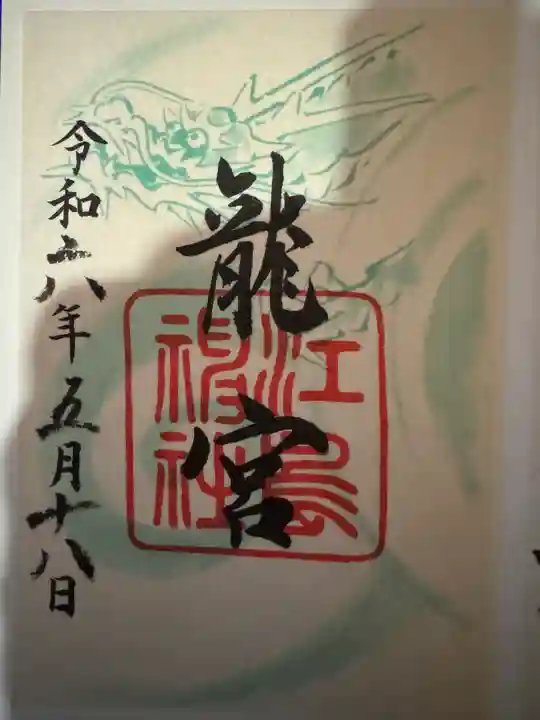 龍宮
江島
神社
令和六年五月十八日